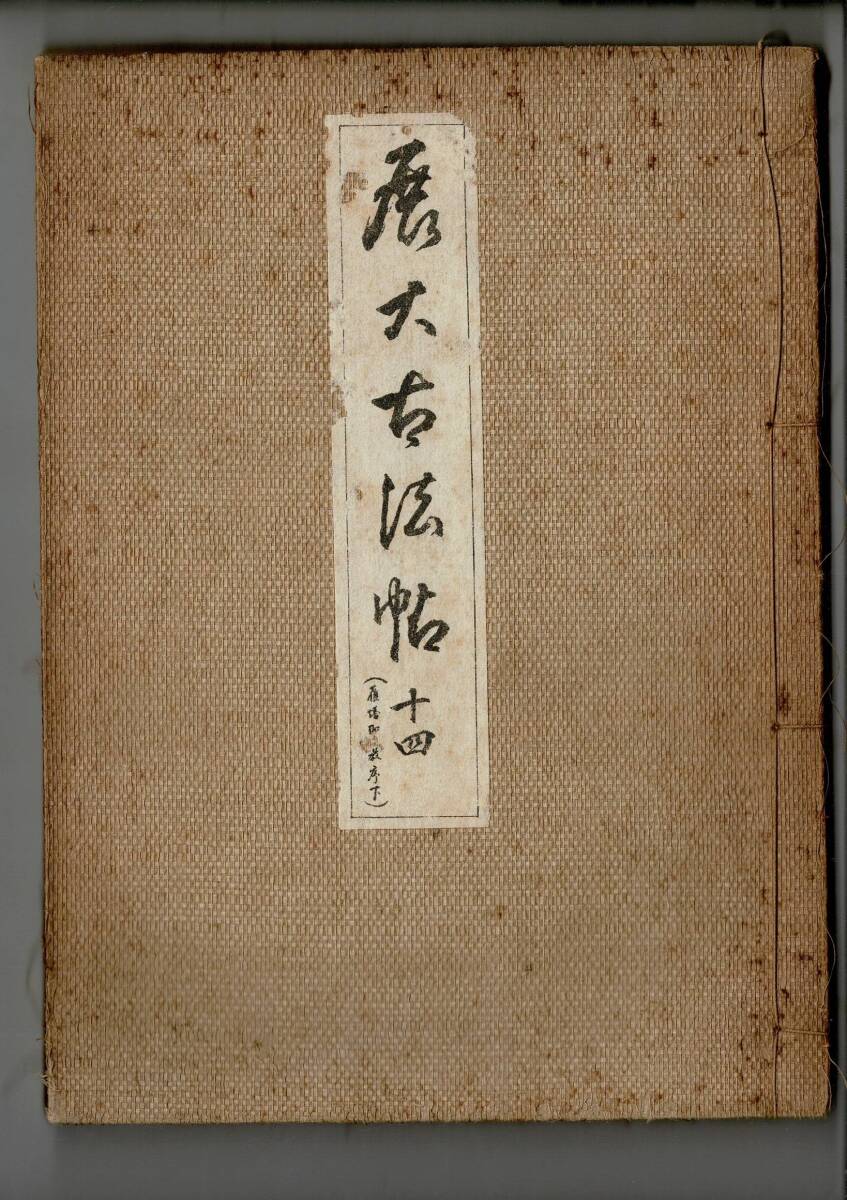 展大古法帖 十四
（雁塔聖教序下）